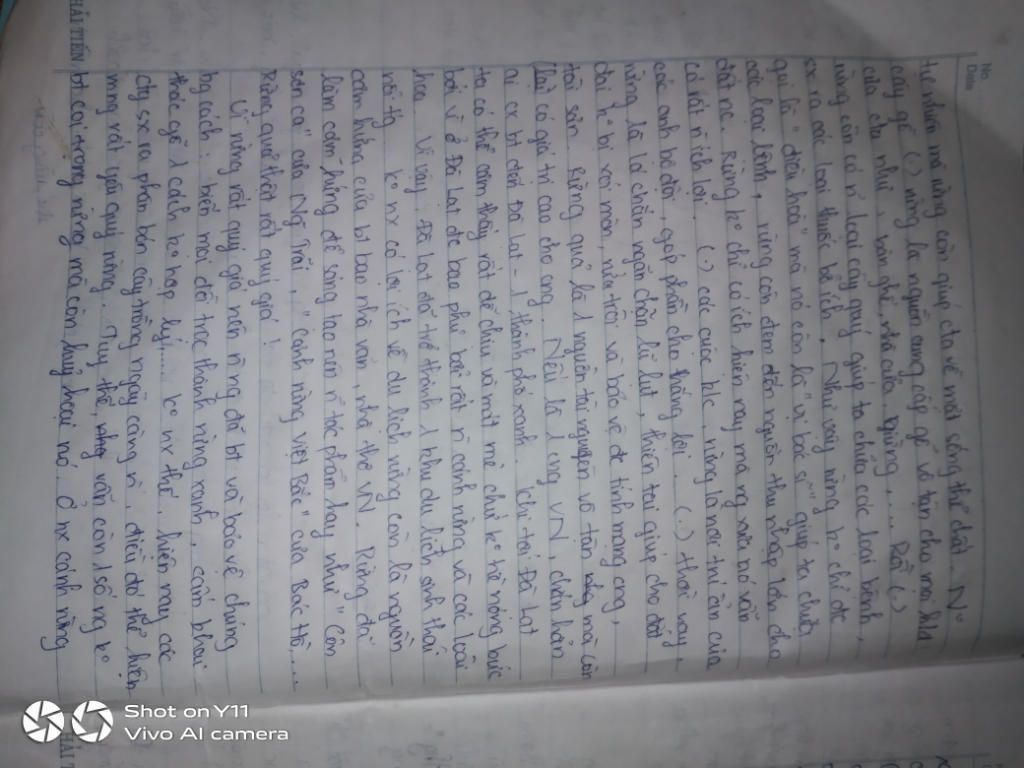 No.
Date
tự nhiên mà rừng còn giúp cta về mặt sống thể chất. N°
cây gỗ (.) rừng là nguồn cung cấp gỗ vô tận cho mọi
của cta như, bàn ghế, nhà cửa, giường, ... Rồi (.)
rừng còn có n̄ loại cây quý giúp ta chữa các loại bệnh,
sx ra các loại thuốc bổ ích. Như vậy rừng k° chỉ đc
gọi là "điều hoà" mà nó còn là "vị bác sĩ" giúp ta chữa
các loại bệnh, rừng còn đem đến nguồn thu nhập lớn cho
đất nc. Rừng k° chỉ có ích hiện nay mà ng xưa nó vẫn
có rất n̄ ích lợi. (.) các cuộc k/c, rừng là nơi trú ẩn của
các anh bộ đội, góp phần cho thắng lợi. (.) thời nay,
rừng là lá chắn ngăn chặn lũ lụt, thiên tai giúp cho đất
đai k° bị xói mòn, nứa trôi và bảo vệ đc tính mạng con,
tài sản. Rừng quả là 1 nguồn tài nguyên vô tận mà còn
chỉ có giá trị cao cho ng. Nếu là 1 ng VN, chắn hẳn
ai cx bt đến Đà Lạt - 1 thành phố xanh. Khi tới Đà Lạt
ta có thể cảm thấy rất dễ chịu và mát mẻ chứ k° hề nóng bức
bởi vì ở Đà Lạt đc bao phủ bởi rất n̄ cánh rừng và các loài
hoa. Vì vậy, Đà Lạt đã trở thành 1 khu du lịch sinh thái
K° nx có lợi ích về du lịch rừng còn là nguồn
cảm hứng của bt bao nhà văn, nhà thơ VN. Rừng đã
làm cảm hứng để sáng tạo nên n̄ tác phẩm hay như "Côn
sơn ca" của Ng Trãi, "Cảnh rừng Việt Bắc" của Bác Hồ,...
Rừng quả thật rất quý giá!
Vì rừng rất quý giá nên n̄ ng đã bt và bảo vệ chúng
bằng cách: biến mọi đồi trọc thành rừng xanh, cấm khai
thác gỗ 1 cách k° hợp lý,... k° nx thế, hiện nay các
cty sx ra phân bón cây trồng ngày càng n̄, điều đó thể hiện
rất yêu quý rừng. Tuy thế, vẫn còn 1 số ng k°
bt coi trọng rừng mà còn huỷ hoại nó. Ở mx cánh rừng
HẢI TIẾN
Shot on Y11
Vivo AI camera